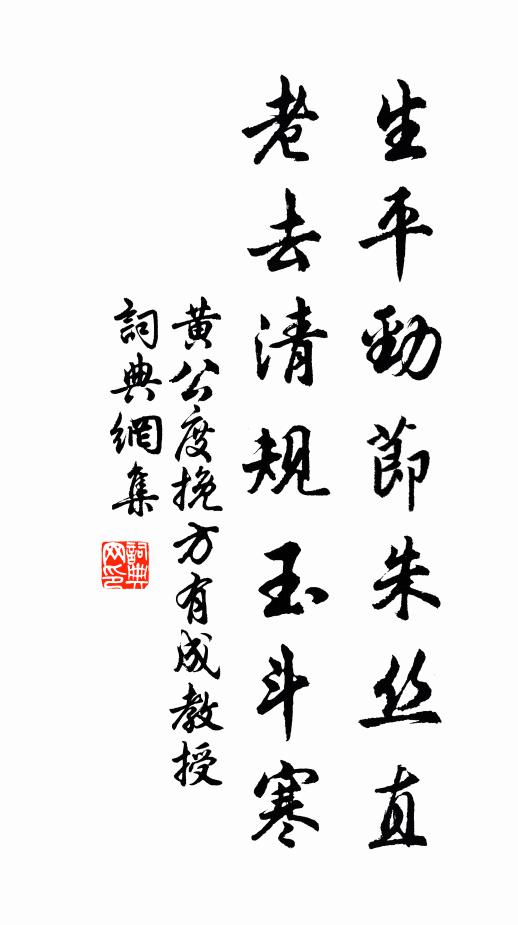 生平勁節朱丝直
老去清規玉斗寒
黄公度挽方有成教授
詞典網集
詞典
网印